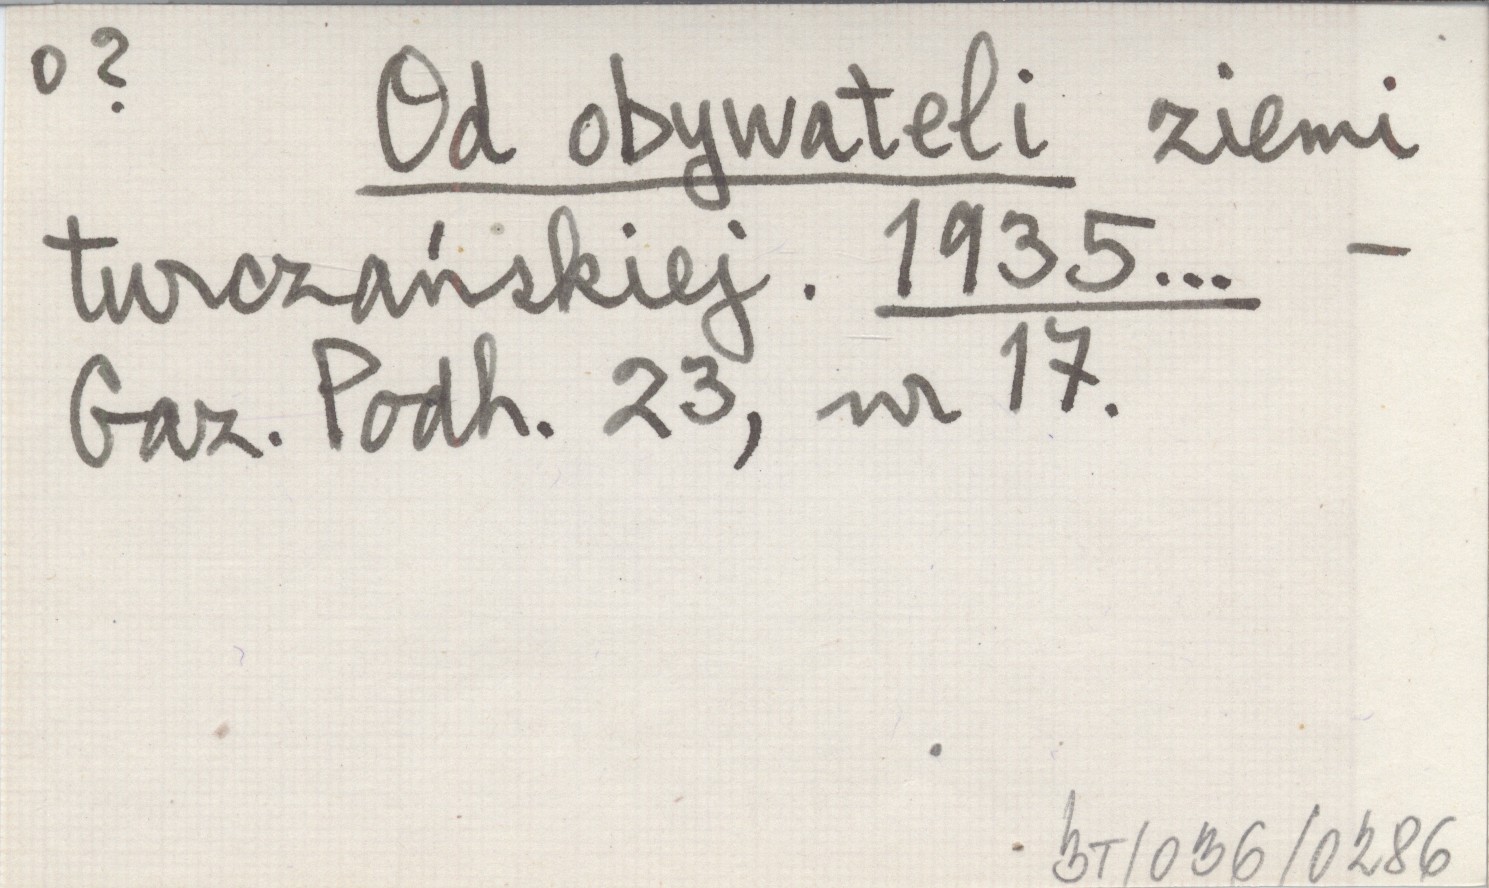 o?
Od obywateli ziemi
turczańskiej. 1935... –
Gaz. Podh. 23, nr 17.
BT/036/0286